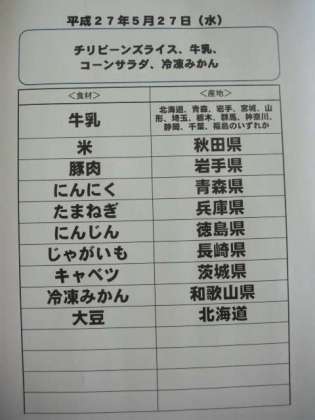 平成27年5月27日（水）
チリビーンズライス、牛乳、
コーンサラダ、冷凍みかん
＜食材＞ ＜産地＞
牛乳 北海道、青森、岩手、宮城、山
形、埼玉、栃木、群馬、神奈川、
静岡、千葉、福島のいずれか
米 秋田県
豚肉 岩手県
にんにく 青森県
たまねぎ 兵庫県
にんじん 徳島県
じゃがいも 長崎県
キャベツ 茨城県
冷凍みかん 和歌山県
大豆 北海道